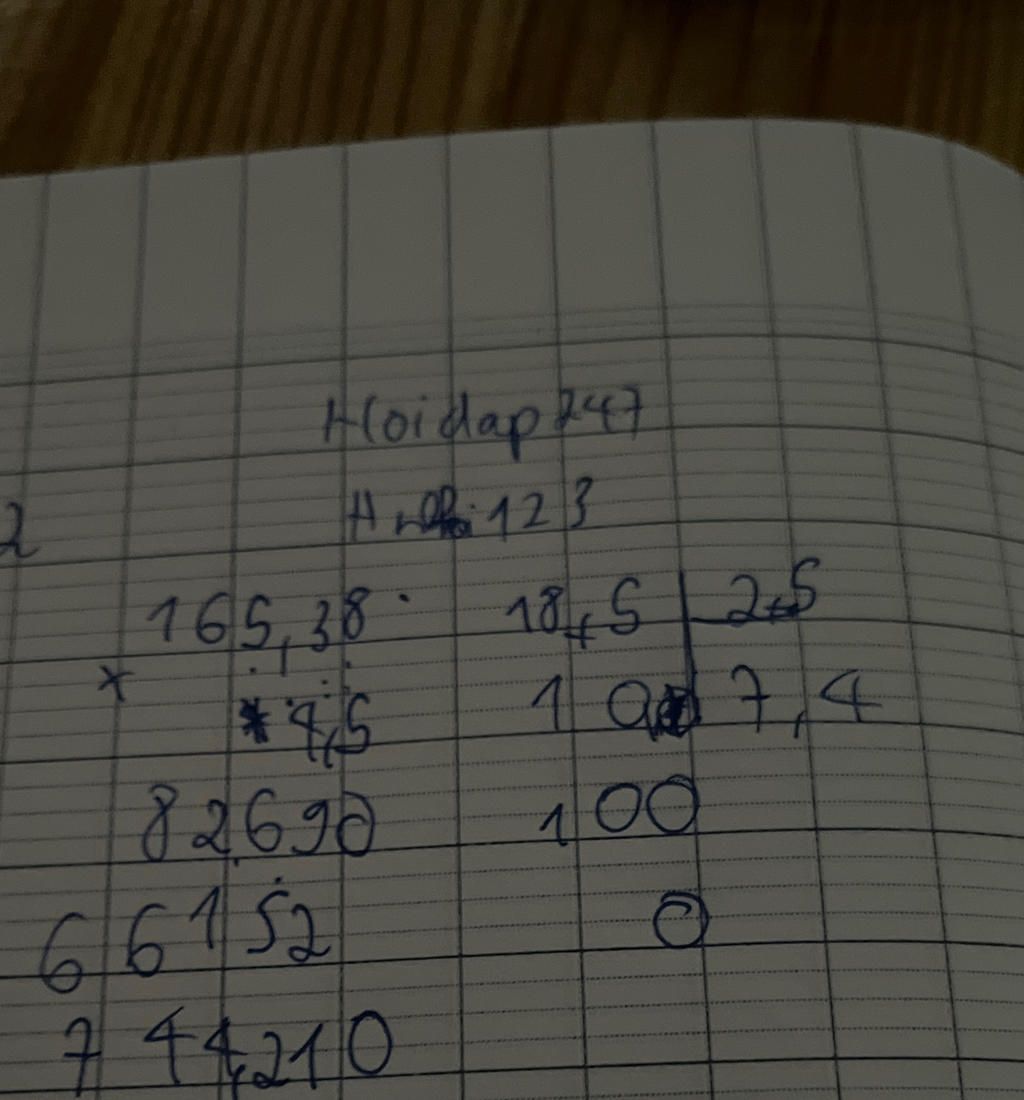 Hoidap247
123
2
165,38
x
4,5
82690
66152
744,210
18,5 2,5
10 7,4
100
0